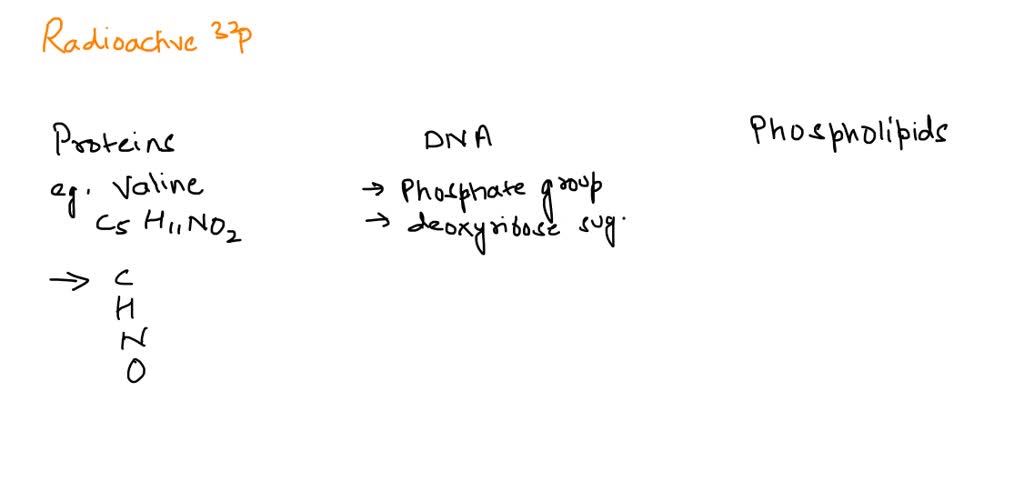 Radioactive ³²p
Proteins
eg. Valine
C₅ H₁₁NO₂
→ C
H
N
O
DNA
→ Phosphate group
→ deoxyribose sug.
Phospholipids